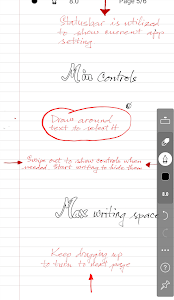 8.0 Page 5/6
Statusbar is utilized
to show current app
setting
Min controls
Draw around
text to select it
Swipe out to show controls when
needed. Start writing to hide them
8.0
Max writing space
Keep dragging up
to turn to next page